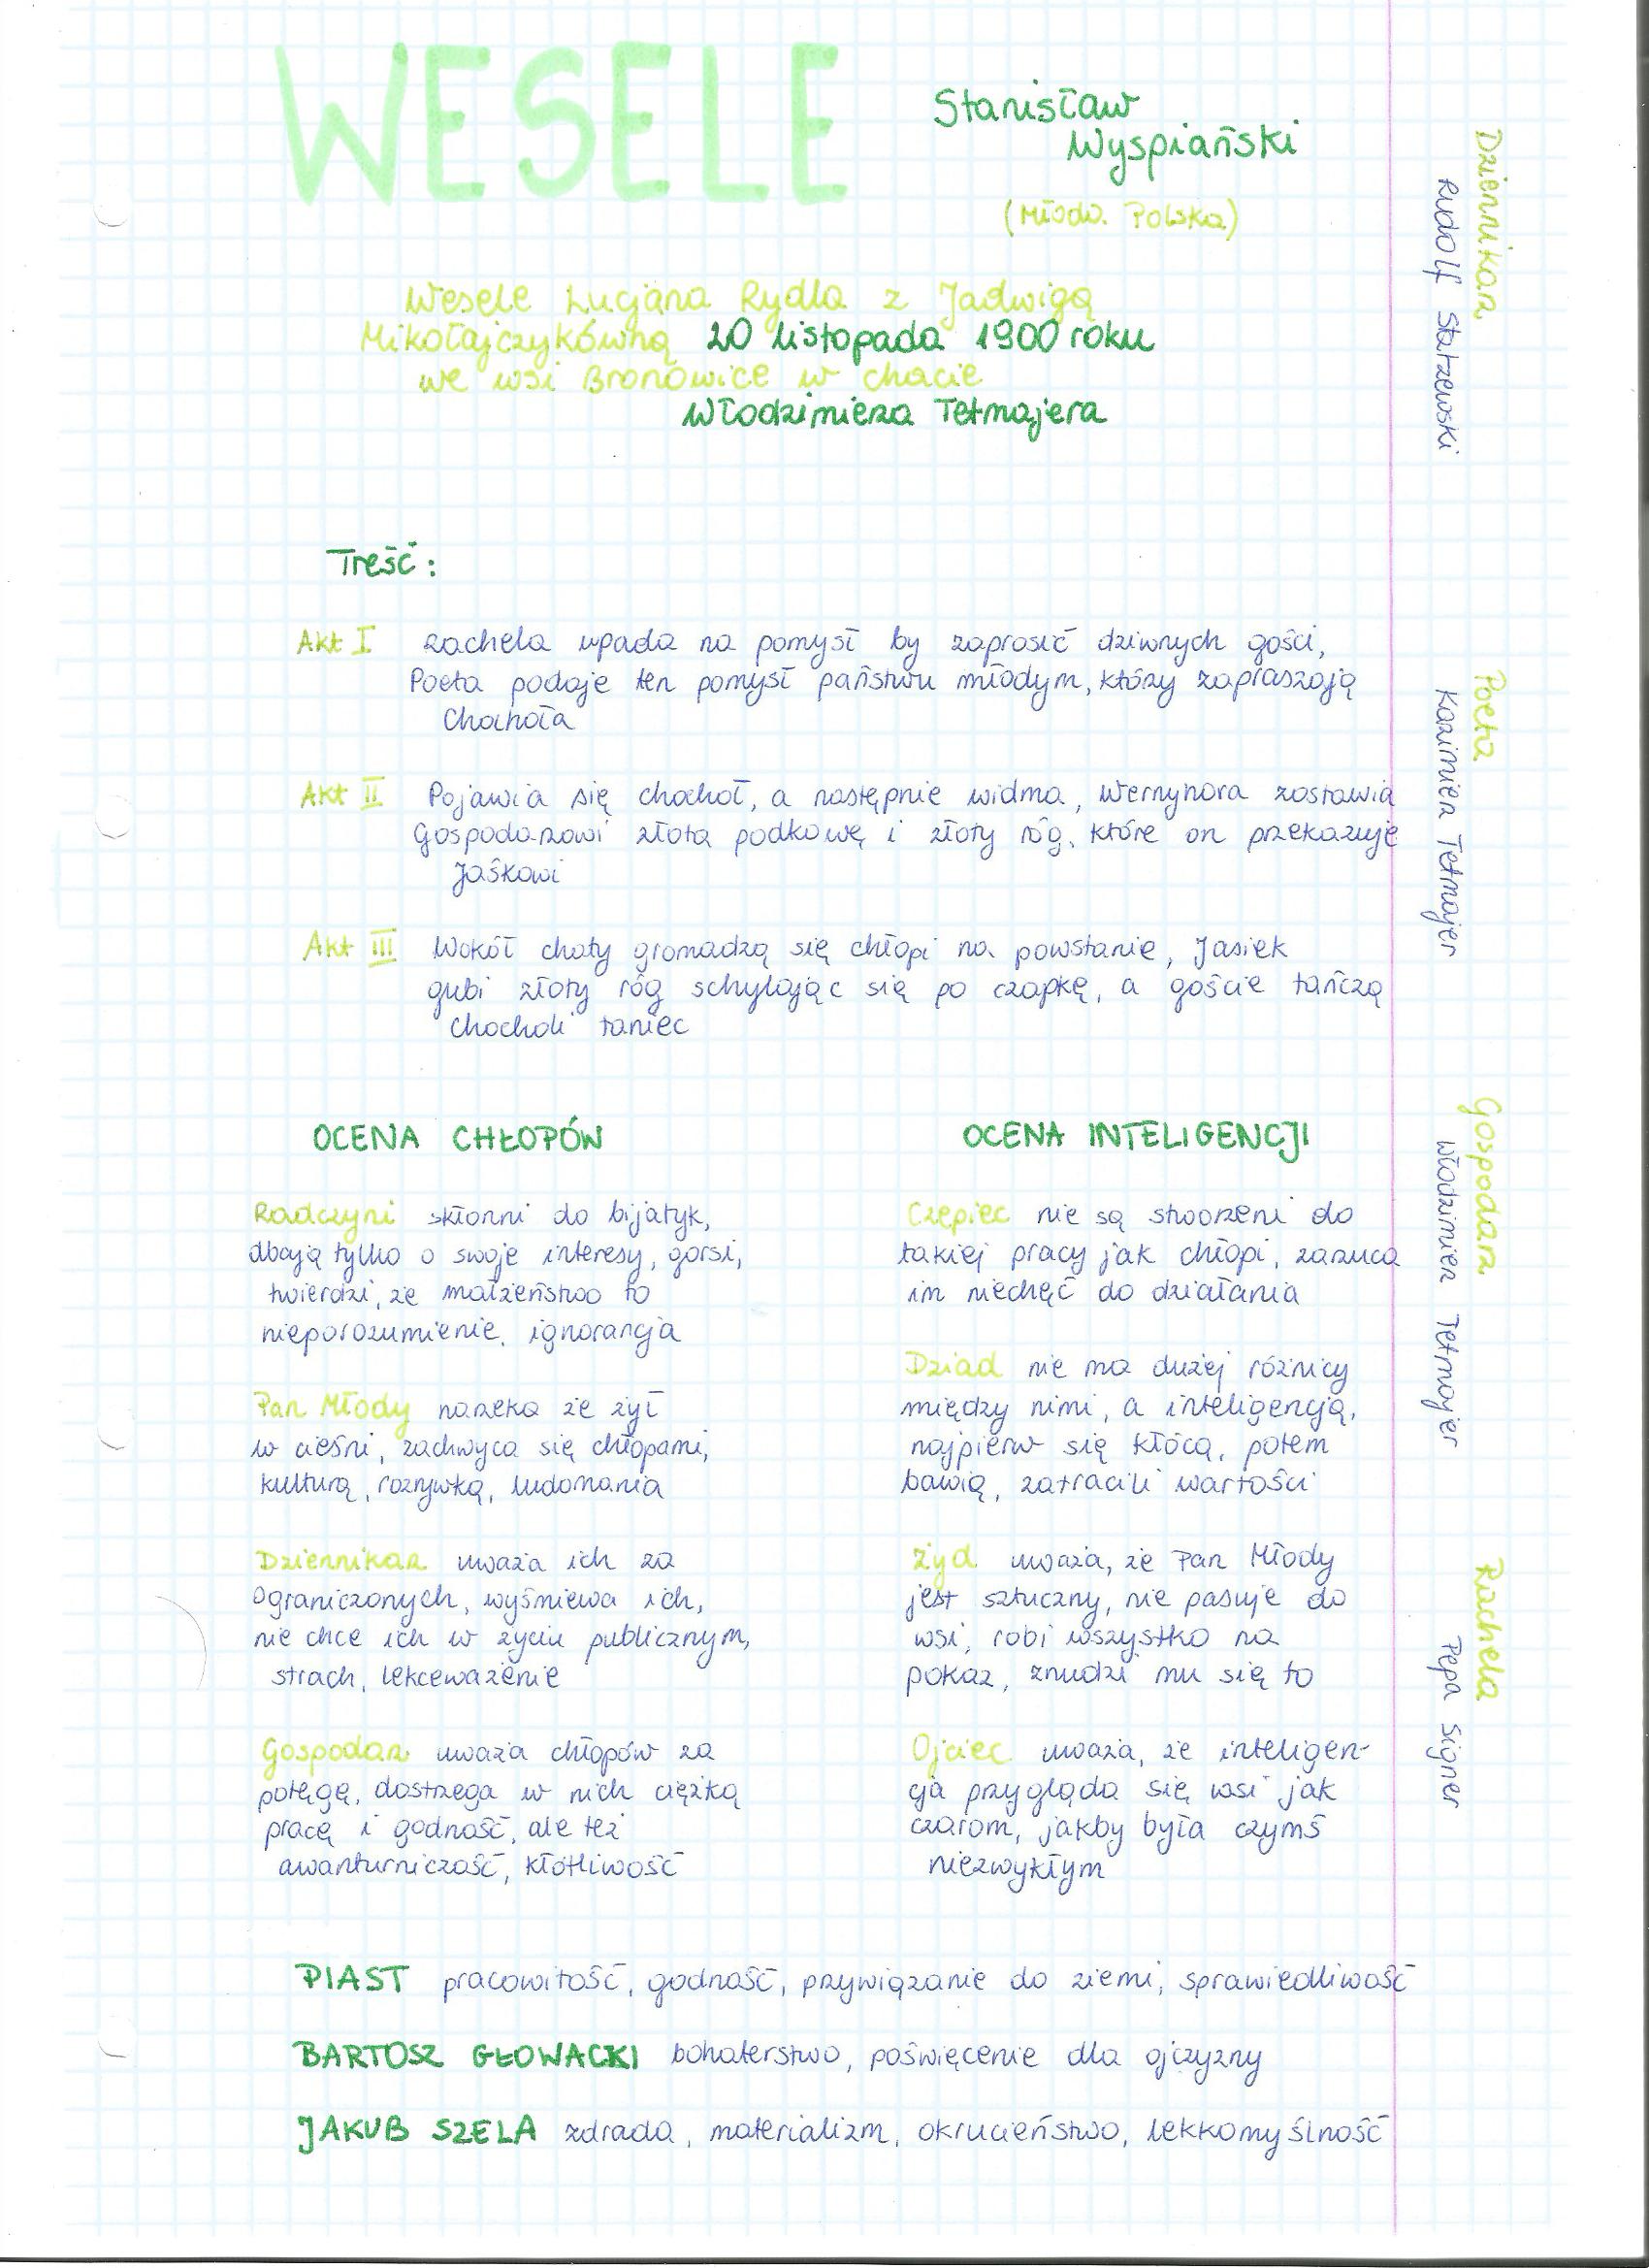 WESELE
Stanisław
Wyspiański
(Młoda Polska)
Wesele Lucjana Rydla z Jadwigą
Mikołajczykówną 20 listopada 1900 roku
we wsi Bronowice w chacie
Włodzimierza Tetmajera
Treść:
Akt I Rachela wpada na pomysł by zaprosić dziwnych gości,
Poeta podaje ten pomysł państwu młodym, którzy zapraszają
Chochoła
Akt II Pojawia się chochoł, a następnie widma, Wernyhora zostawia
Gospodarzowi złotą podkowę i złoty róg, które on przekazuje
Jaśkowi
Akt III Wokół chaty gromadzą się chłopi na powstanie, Jasiek
gubi złoty róg schylając się po czapkę, a goście tańczą
chocholi taniec
OCENA CHŁOPÓW
Radczyni skłonni do bijatyk,
dbają tylko o swoje interesy, gorsi,
twierdzi, że małżeństwo to
nieporozumienie, ignorancja
Pan Młody narzeka że żył
w cieśni, zachwyca się chłopami,
kulturą, rozrywką, ludomania
Dziennikarz uważa ich za
ograniczonych, wyśmiewa ich,
nie chce ich w życiu publicznym,
strach, lekceważenie
Gospodarz uważa chłopów za
potęgę, dostrzega w nich ciężką
pracę i godność, ale też
awanturniczość, kłótliwość
OCENA INTELIGENCJI
Czepiec nie są stworzeni do
takiej pracy jak chłopi, zarzuca
im niechęć do działania
Dziad nie ma dużej różnicy
między nimi, a inteligencją,
najpierw się kłócą, potem
bawią, zatracili wartości
Żyd uważa, że Pan Młody
jest sztuczny, nie pasuje do
wsi, robi wszystko na
pokaz, znudzi mu się to
Ojciec uważa, że inteligen-
cja przygląda się wsi jak
czarom, jakby była czymś
niezwykłym
PIAST pracowitość, godność, przywiązanie do ziemi, sprawiedliwość
BARTOSZ GŁOWACKI bohaterstwo, poświęcenie dla ojczyzny
JAKUB SZELA zdrada, materializm, okrucieństwo, lekkomyślność
Dziennikarz
Rudolf Starzewski
Poeta
Kazimierz Tetmajer
Gospodarz
Włodzimierz Tetmajer
Rachela
Pepa Signer